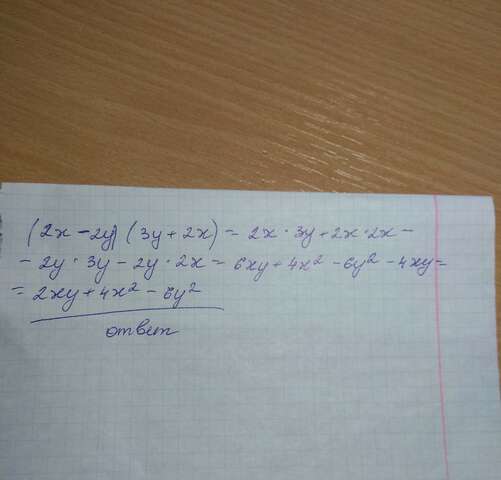 (2x - 2y) (3y + 2x) = 2x · 3y + 2x · 2x -
- 2y · 3y - 2y · 2x = 6xy + 4x² - 6y² - 4xy =
= 2xy + 4x² - 6y²
ответ